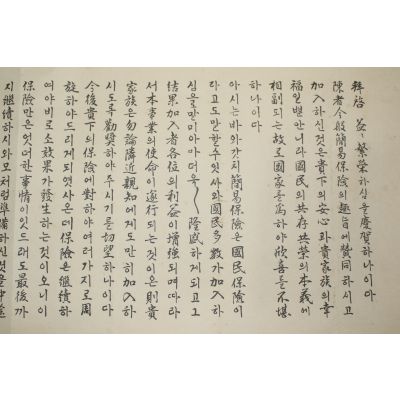 拜啓 益々繁榮하심을慶賀하나이다
陳者今般簡易保險의趣旨에贊同하시고
加入하신것은貴下의安心과貴家族의幸
福일뿐만안니라國民의共存共榮의本義에
相副되는故로國家를爲하야欣喜를不堪
하나이다
아시는바와갓치簡易保險은國民保險이
라고도말할수잇사와國民多數가加入하
심을만이아마더욱〱隆盛하게되고그
結果加入者各位의利益이增強되며따라
서本事業의使命이遂行되는것이은則貴
家族은勿論隣近親知에게도만히加入하
시도록勸奬하야주시기를切望하나이다
今後貴下의保險에對하야여러가지로周
旋하야드리게되엿사온데保險은繼續하
여야비로소效果가發生하는것이오니이
保險만은엇더한事情이잇드래도最後까
지繼續하시와모처럼準備하신것을中途